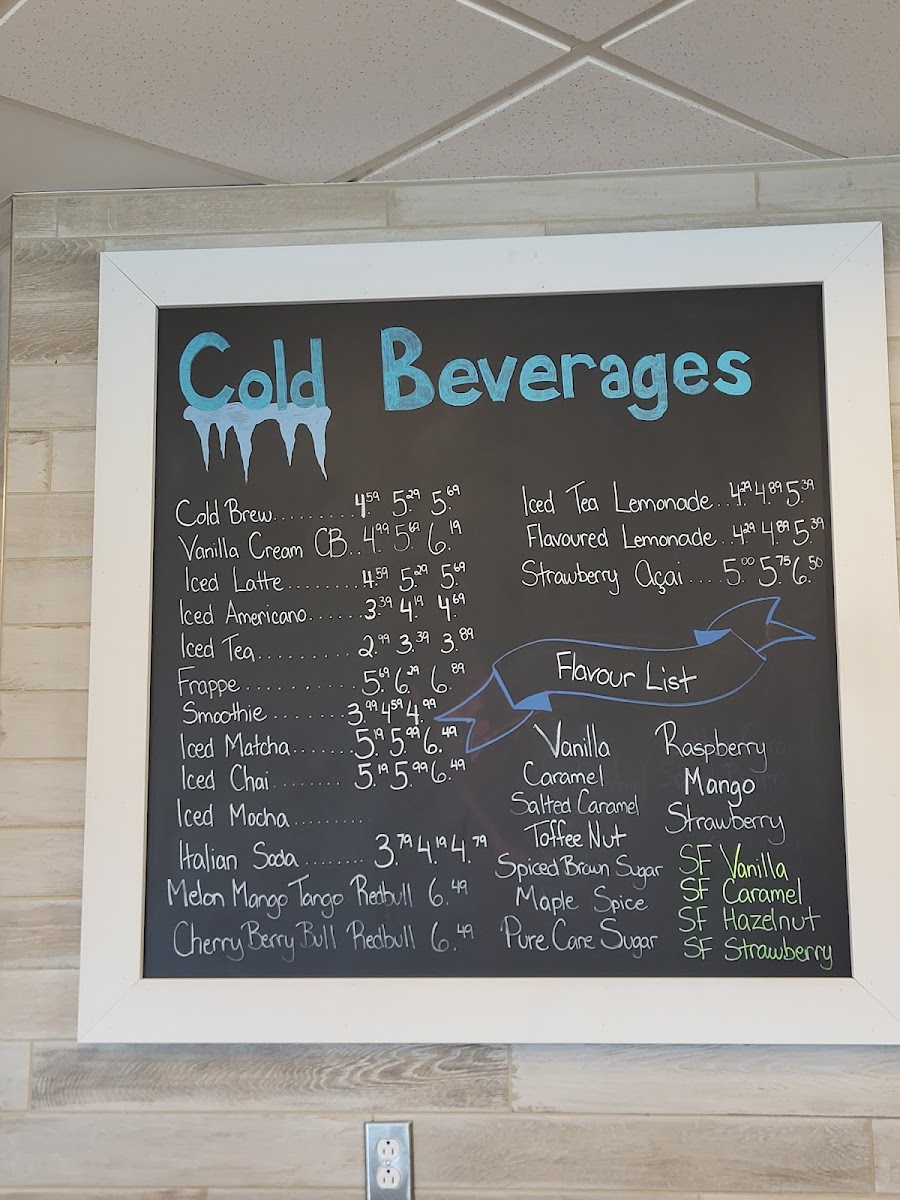 Cold Beverages
Cold Brew......... 4.59 5.29 5.69
Vanilla Cream CB.. 4.99 5.69 6.19
Iced Latte........ 4.59 5.29 5.69
Iced Americano...... 3.39 4.19 4.69
Iced Tea.......... 2.99 3.39 3.89
Frappe.......... 5.69 6.29 6.89
Smoothie........ 3.99 4.59 4.99
Iced Matcha....... 5.19 5.99 6.49
Iced Chai........ 5.19 5.99 6.49
Iced Mocha.........
Italian Soda....... 3.79 4.19 4.79
Melon Mango Tango Redbull 6.49
Cherry Berry Bull Redbull 6.49
Iced Tea Lemonade.. 4.29 4.89 5.39
Flavoured Lemonade.. 4.29 4.89 5.39
Strawberry Açai.... 5.00 5.75 6.50
Flavour List
Vanilla
Caramel
Salted Caramel
Toffee Nut
Spiced Brown Sugar
Maple Spice
Pure Cane Sugar
Raspberry
Mango
Strawberry
SF Vanilla
SF Caramel
SF Hazelnut
SF Strawberry